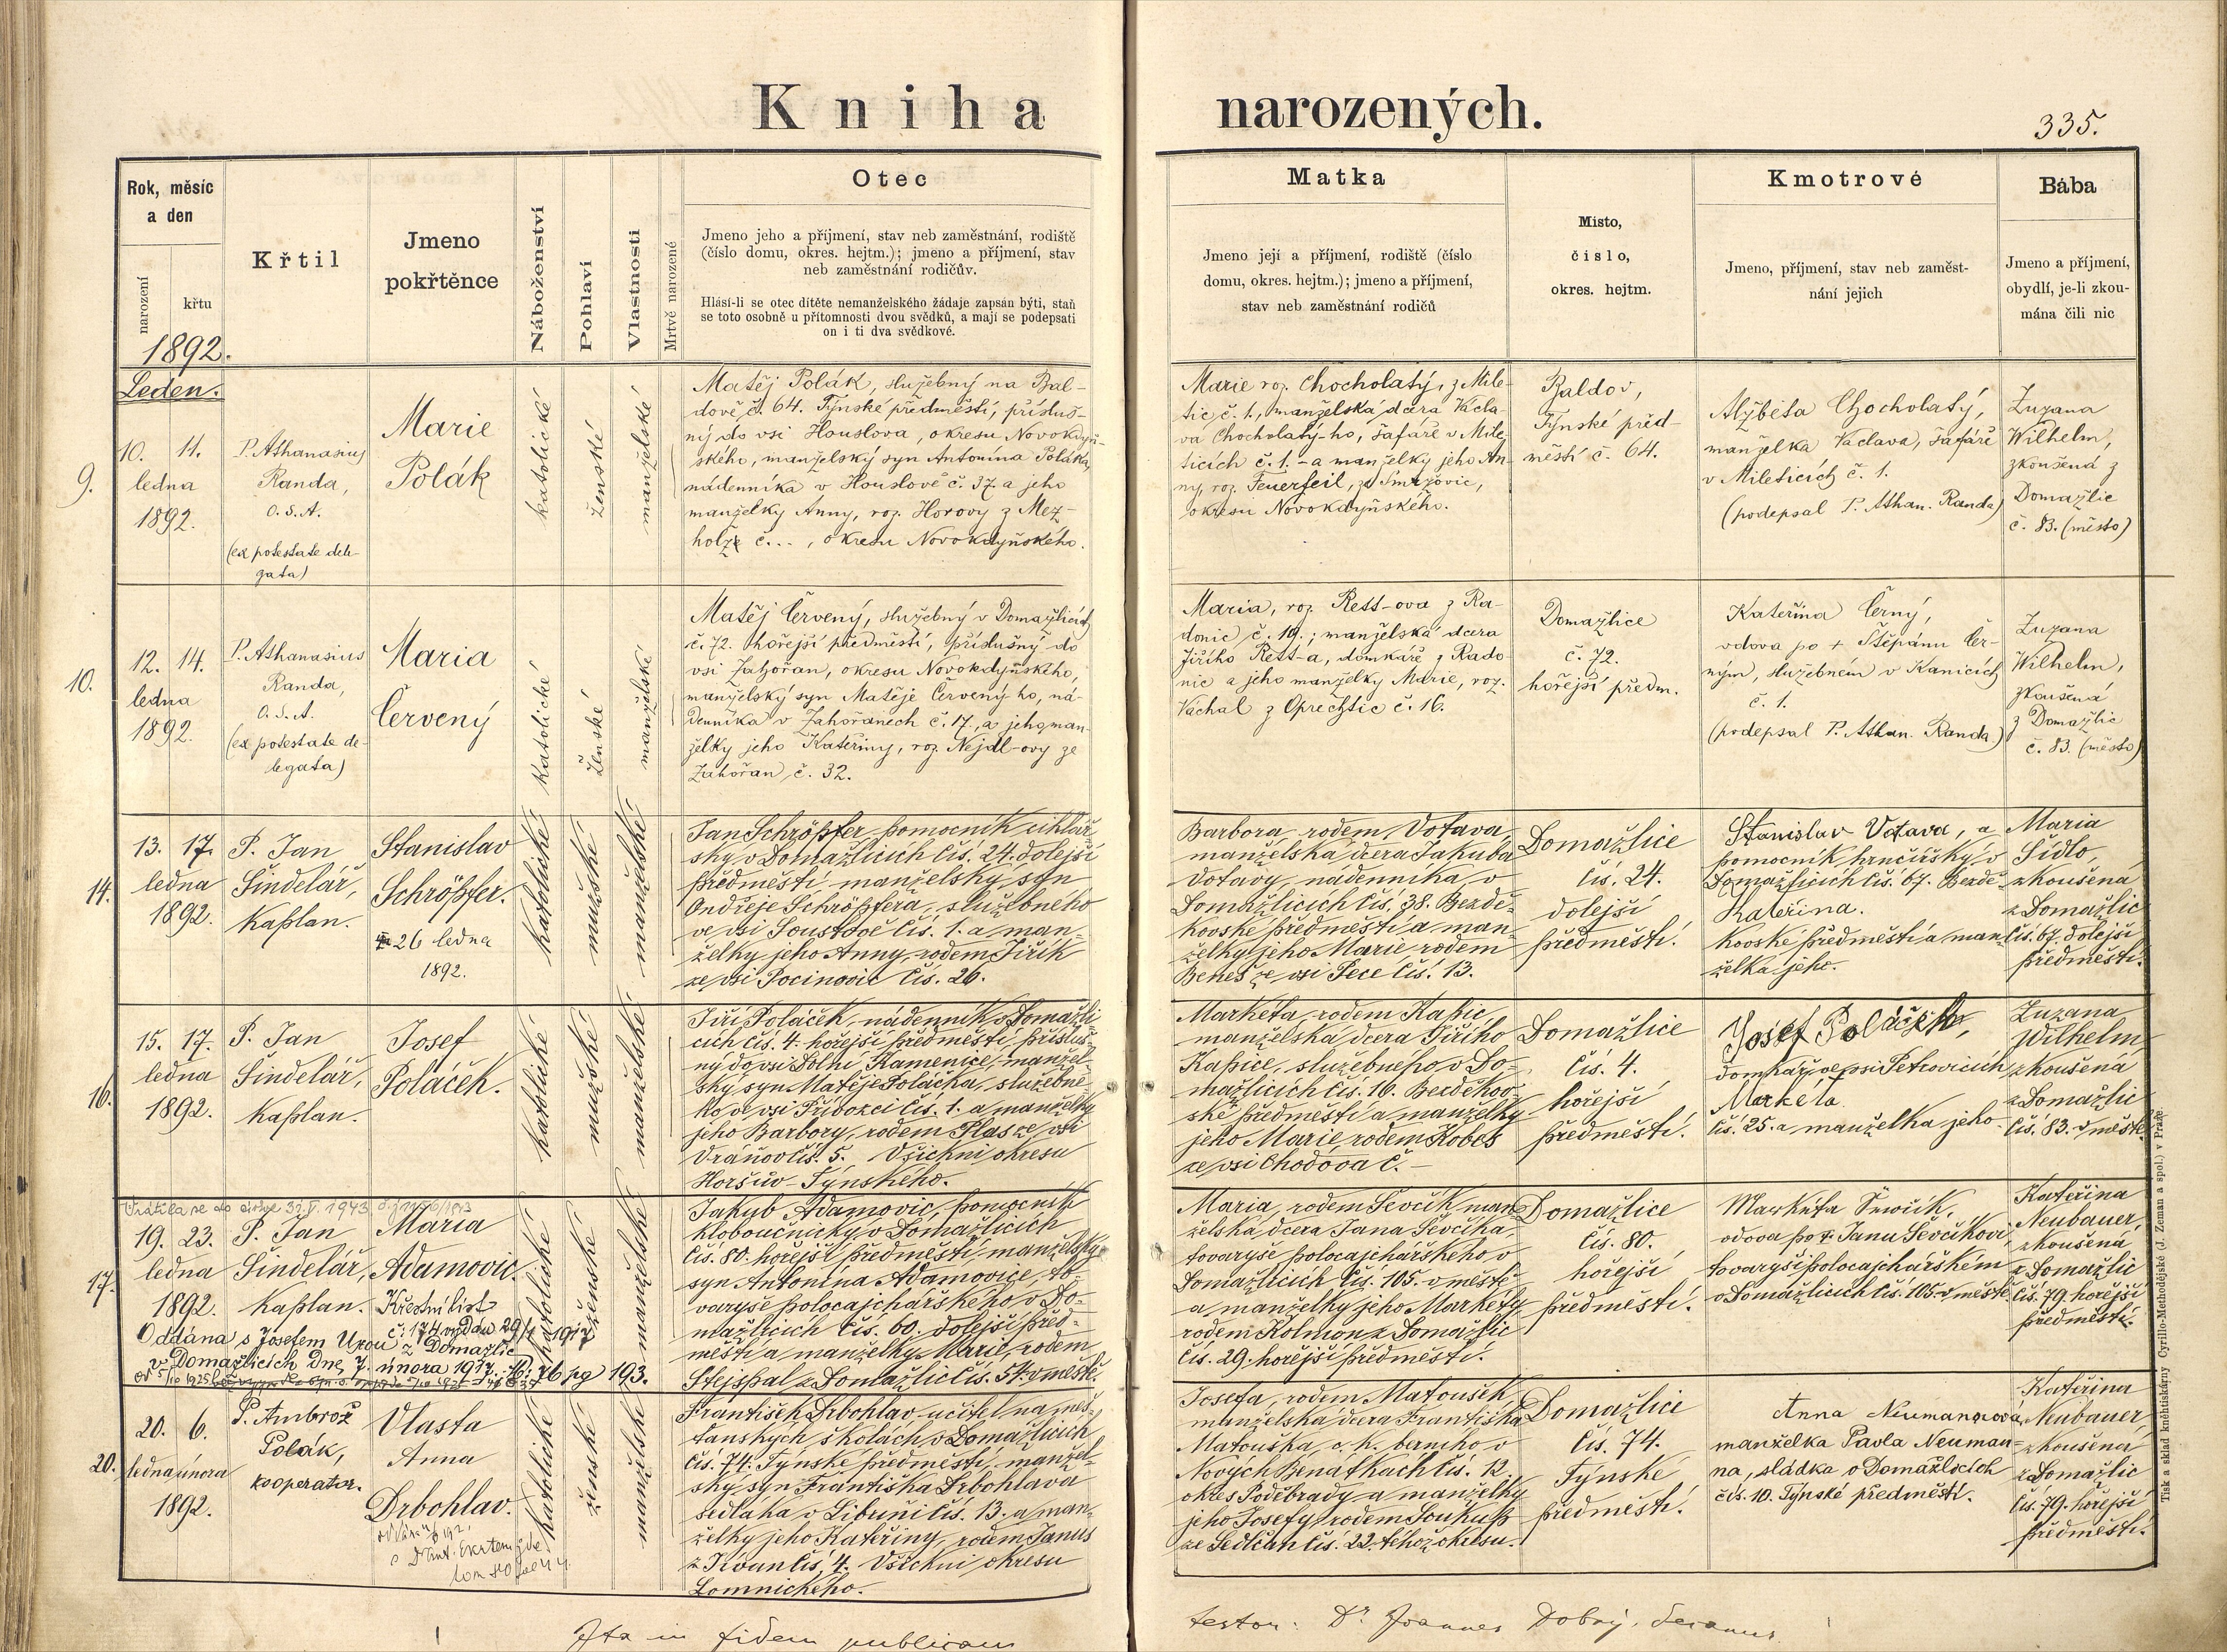 Kniha narozených.
335.
Rok, měsíc
a den
narození
křtu
Křtil
Jmeno
pokřtěnce
Náboženství
Pohlaví
Vlastnosti
Mrtvě narozené
Otec
Jmeno jeho a příjmení, stav neb zaměstnání, rodiště
(číslo domu, okres. hejtm.); jmeno a příjmení, stav
neb zaměstnání rodičův.
Hlásí-li se otec dítěte nemanželského žádaje zapsán býti, staň
se toto osobně u přítomnosti dvou svědků, a mají se podepsati
on i ti dva svědkové.
Matka
Jmeno její a příjmení, rodiště (číslo
domu, okres. hejtm.); jmeno a příjmení,
stav neb zaměstnání rodičů
Místo,
číslo,
okres. hejtm.
Kmotrové
Jmeno, příjmení, stav neb zaměst-
nání jejich
Bába
Jmeno a příjmení,
obydlí, je-li zkou-
mána čili nic
1892.
Leden.
9.
10. 11.
ledna
1892.
P. Athanasius
Randa,
O. S. A.
(ex potestate dele-
gata)
Marie
Polák
katolické
ženské
manželské
Matěj Polák, služebný na Bal-
dově č. 64. Týnské předměstí, přísluš-
ný do vsi Houslova, okresu Novokdyň-
ského, manželský syn Antonína Poláka,
nádenníka v Houslově č. 37 a jeho
manželky Anny, roz. Horovy z Mez-
holz č. .. , okresu Novokdyňského.
Marie roz. Chocholatý, z Mile-
tic č. 1., manželská dcera Václa-
va Chocholatý-ho, šafáře v Mile-
ticích č. 1. - a manželky jeho An-
ny, roz. Feuerfeil, ze Smržovic,
okresu Novokdyňského.
Baldov,
Týnské před-
městí č. 64.
Alžběta Chocholatý,
manželka Václava, šafáře
v Mileticích č. 1.
(podepsal P. Athan. Randa)
Zuzana
Wilhelm,
zkoušená z
Domažlic
č. 83. (město)
10.
12. 14.
ledna
1892.
P. Athanasius
Randa,
O. S. A.
(ex potestate de-
legata)
Maria
Červený
katolické
ženské
manželské
Matěj Červený, služebný v Domažlicích
č. 72. hořejší předměstí, příslušný do
vsi Zahořan, okresu Novokdyňského,
manželský syn Matěje Červený ho, ná-
denníka v Zahořanech č. 17., a jeho man-
želky jeho Kateřiny, roz. Nejdl-ovy ze
Zahořan, č. 32.
Maria, roz. Rett-ova z Ra-
donic č. 19.; manželská dcera
Jiřího Rett-a, domkáře z Rado-
nic a jeho manželky Marie, roz.
Váchal z Oprechtic č. 16.
Domažlice
č. 72.
hořejší předm.
Kateřina Černý,
vdova po + Štěpánu Čer-
ným, služebném v Kanicích
č. 1.
(podepsal P. Athan. Randa)
Zuzana
Wilhelm,
zkoušená
z Domažlic
č. 83. (město)
14.
13. 17.
ledna
1892.
P. Jan
Šindelář,
kaplan.
Stanislav
Schröpfer.
26 ledna
1892.
katolické
mužské
manželské
Jan Schröpfer, pomocník cihlář-
ský v Domažlicích čís. 24. dolejší
předměstí, manželský syn
Ondřeje Schröpfera, služebného
ve vsi Loustově čís. 1. a man-
želky jeho Anny, rodem Jiřík
ze vsi Pocinovic čís. 26.
Barbora, rodem Votava,
manželská dcera Jakuba
Votavy, nádenníka v
Domažlicích čís. 38. Bezdě-
kovské předměstí a man-
želky jeho Marie rodem
Beneš ze vsi Pece čís. 13.
Domažlice
čís. 24.
dolejší
předměstí.
Stanislav Votava, a
pomocník hrnčířský v
Domažlicích čís. 67. Bezdě-
Kateřina.
kovské předměstí a man-
želka jeho.
Maria
Sídlo,
zkoušená
z Domažlic
čís. 67. dolejší
předměstí.
16.
15. 17.
ledna
1892.
P. Jan
Šindelář,
kaplan.
Josef
Poláček.
katolické
mužské
manželské
Jiří Poláček, nádenník v Domažli-
cích čís. 4. hořejší předměstí, přísluš-
ný do vsi Dolní Kamenice, manžel-
ský syn Matěje Poláčka, služebné-
ho ve vsi Příbozci čís. 1. a manželky
jeho Barbory, rodem Flas ze vsi
Vraňov čís. 5. Všichni okresu
Horšův-Týnského.
Markéta, rodem Kapic,
manželská dcera Jiřího
Kapice, služebného v Do-
mažlicích čís. 16. Bezděkov-
ské předměstí a manželky
jeho Marie rodem Kobes
ze vsi Chodova č. —
Domažlice
čís. 4.
hořejší
předměstí.
Josef Poláček,
domkář ve vsi Petrovicích
Markéta
čís. 25. a manželka jeho.
Zuzana
Wilhelm
zkoušená
z Domažlic
čís. 83. v městě.
17.
Vrátila se do církve 31. V. 1943
19. 23.
ledna
1892.
P. Jan
Šindelář,
kaplan.
Maria
Adamovic.
Křestní list
č. 174 vydán 29/1 1917
Oddána s Josefem Urou z Domažlic
v Domažlicích dne 7. února 1917. 76 pg 193.
katolické
ženské
manželské
Jakub Adamovic, pomocník
kloboučnický v Domažlicích
čís. 80. hořejší předměstí, manželský
syn Antonína Adamovice, to-
varyše polocajchářského v Do-
mažlicích čís. 60. dolejší před-
městí a manželky Marie, rodem
Stejspal z Domažlic čís. 54. v městě.
Maria, rodem Ševčík, man-
želská dcera Jana Ševčíka,
tovaryše polocajchářského v
Domažlicích čís. 105. v městě
a manželky jeho Markéty
rodem Kolmon z Domažlic
čís. 29. hořejší předměstí.
Domažlice
čís. 80.
hořejší
předměstí.
Markéta Šewčik,
vdova po + Janu Ševčíkovi,
tovaryši polocajchářském
v Domažlicích čís. 105. v městě.
Kateřina
Neubauer,
zkoušená
z Domažlic
čís. 79. hořejší
předměstí.
20.
20. 6.
ledna února
1892.
P. Ambrož
Polák,
kooperator.
Vlasta
Anna
Drbohlav.
katolické
ženské
manželské
František Drbohlav, učitel na měš-
ťanských školách v Domažlicích
čís. 74. Týnské předměstí, manžel-
ský syn Františka Drbohlava
sedláka v Libuni čís. 13. a man-
želky jeho Kateřiny, rodem Janus
z Jivan čís. 4. Všichni okresu
Lomnického.
Josefa, rodem Matoušek,
manželská dcera Františka
Matouška, c. k. berního v
Nových Benátkách čís. 12.
okres Poděbrady a manželky
jeho Josefy, rodem Soukup
ze Sedlčan čís. 22. téhož okresu.
Domažlice
čís. 74.
Týnské
předměstí.
Anna Neumannová,
manželka Pavla Neuman-
na, sládka v Domažlicích
čís. 10. Týnské předměstí.
Kateřina
Neubauer
zkoušená
z Domažlic
čís. 79. hořejší
předměstí.
Ita in fidem publicam
testor: Dr Joannes Dobrý, decanus
Tisk a sklad knihtiskárny Cyrillo-Methodějské (J. Zeman a spol.) v Praze.